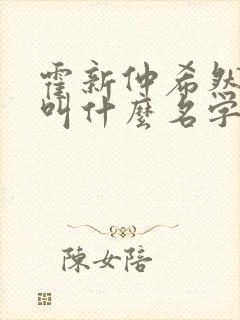 霍新仲希然
叫什麼名字
陳女陪